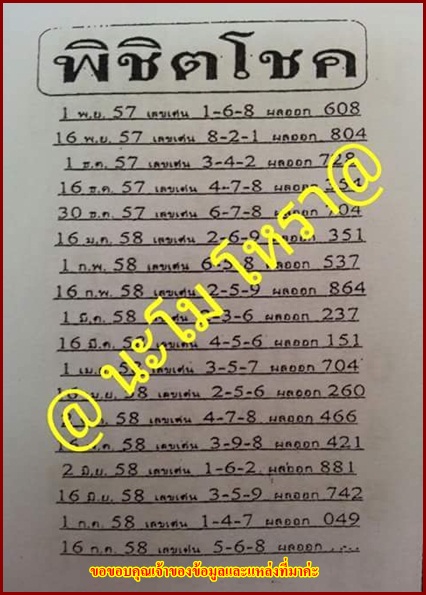 พิชิตโชค
1 พ.ย. 57 เลขเด่น 1-6-8 ผลออก 608
16 พ.ย. 57 เลขเด่น 8-2-1 ผลออก 804
1 ธ.ค. 57 เลขเด่น 3-4-2 ผลออก 728
16 ธ.ค. 57 เลขเด่น 4-7-8 ผลออก
30 ธ.ค. 57 เลขเด่น 6-7-8 ผลออก 704
16 ม.ค. 58 เลขเด่น 2-6-9 ผลออก 351
1 ก.พ. 58 เลขเด่น 6-5-8 ผลออก 537
16 ก.พ. 58 เลขเด่น 2-5-9 ผลออก 864
1 มี.ค. 58 เลขเด่น -3-6 ผลออก 237
16 มี.ค. 58 เลขเด่น 4-5-6 ผลออก 151
1 เม.ย. 58 เลขเด่น 3-5-7 ผลออก 704
58 เลขเด่น 2-5-6 ผลออก 260
58 เลขเด่น 4-7-8 ผลออก 466
58 เลขเด่น 3-9-8 ผลออก 421
2 มิ.ย. 58 เลขเด่น 1-6-2 ผลออก 881
16 มิ.ย. 58 เลขเด่น 3-5-9 ผลออก 742
1 ก.ค. 58 เลขเด่น 1-4-7 ผลออก 049
16 ก.ค. 58 เลขเด่น 5-6-8 ผลออก .....
@ นะโม โหรา@
ขอขอบคุณเจ้าของข้อมูลและแหล่งที่มาค่ะ